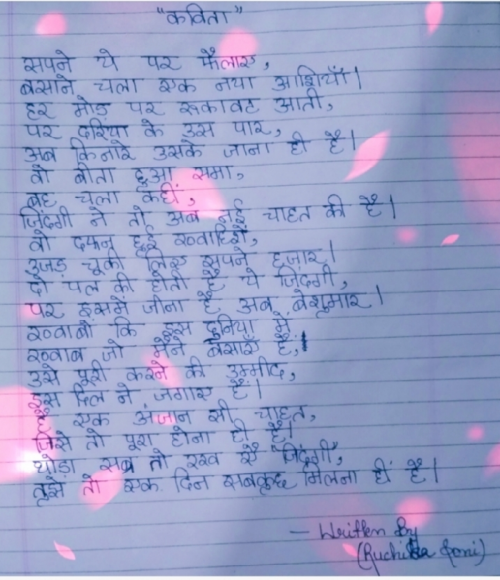 "कविता"
सपने ये पर फैलाए,
बसाने चला एक नया आशियाँ।
हर मोड़ पर रुकावट आती,
पर दरिया के उस पार,
अब किनारे उसके जाना ही है।
वो बीता हुआ समा,
बह चला कहीं,
जिंदगी ने तो अब नई चाहत की है।
वो दफन हुई ख्वाहिशें,
उजड़ चूकी लिए सपने हजार।
दो पल की होती है ये जिंदगी,
पर इसमें जीना है अब बेशुमार।
ख्वाबों कि इस दुनिया में,
ख्वाब जो मैंने बसाएँ है,
उसे पूरी करने की उम्मीद,
इस दिल ने जगाए हैं।
है एक अंजान सी चाहत,
जिसे तो पूरा होना ही है।
थोड़ा सब्र तो रख ऐ जिंदगी,
तुझे तो एक दिन सबकुछ मिलना हीं है।
— Written By
(Ruchika Soni)